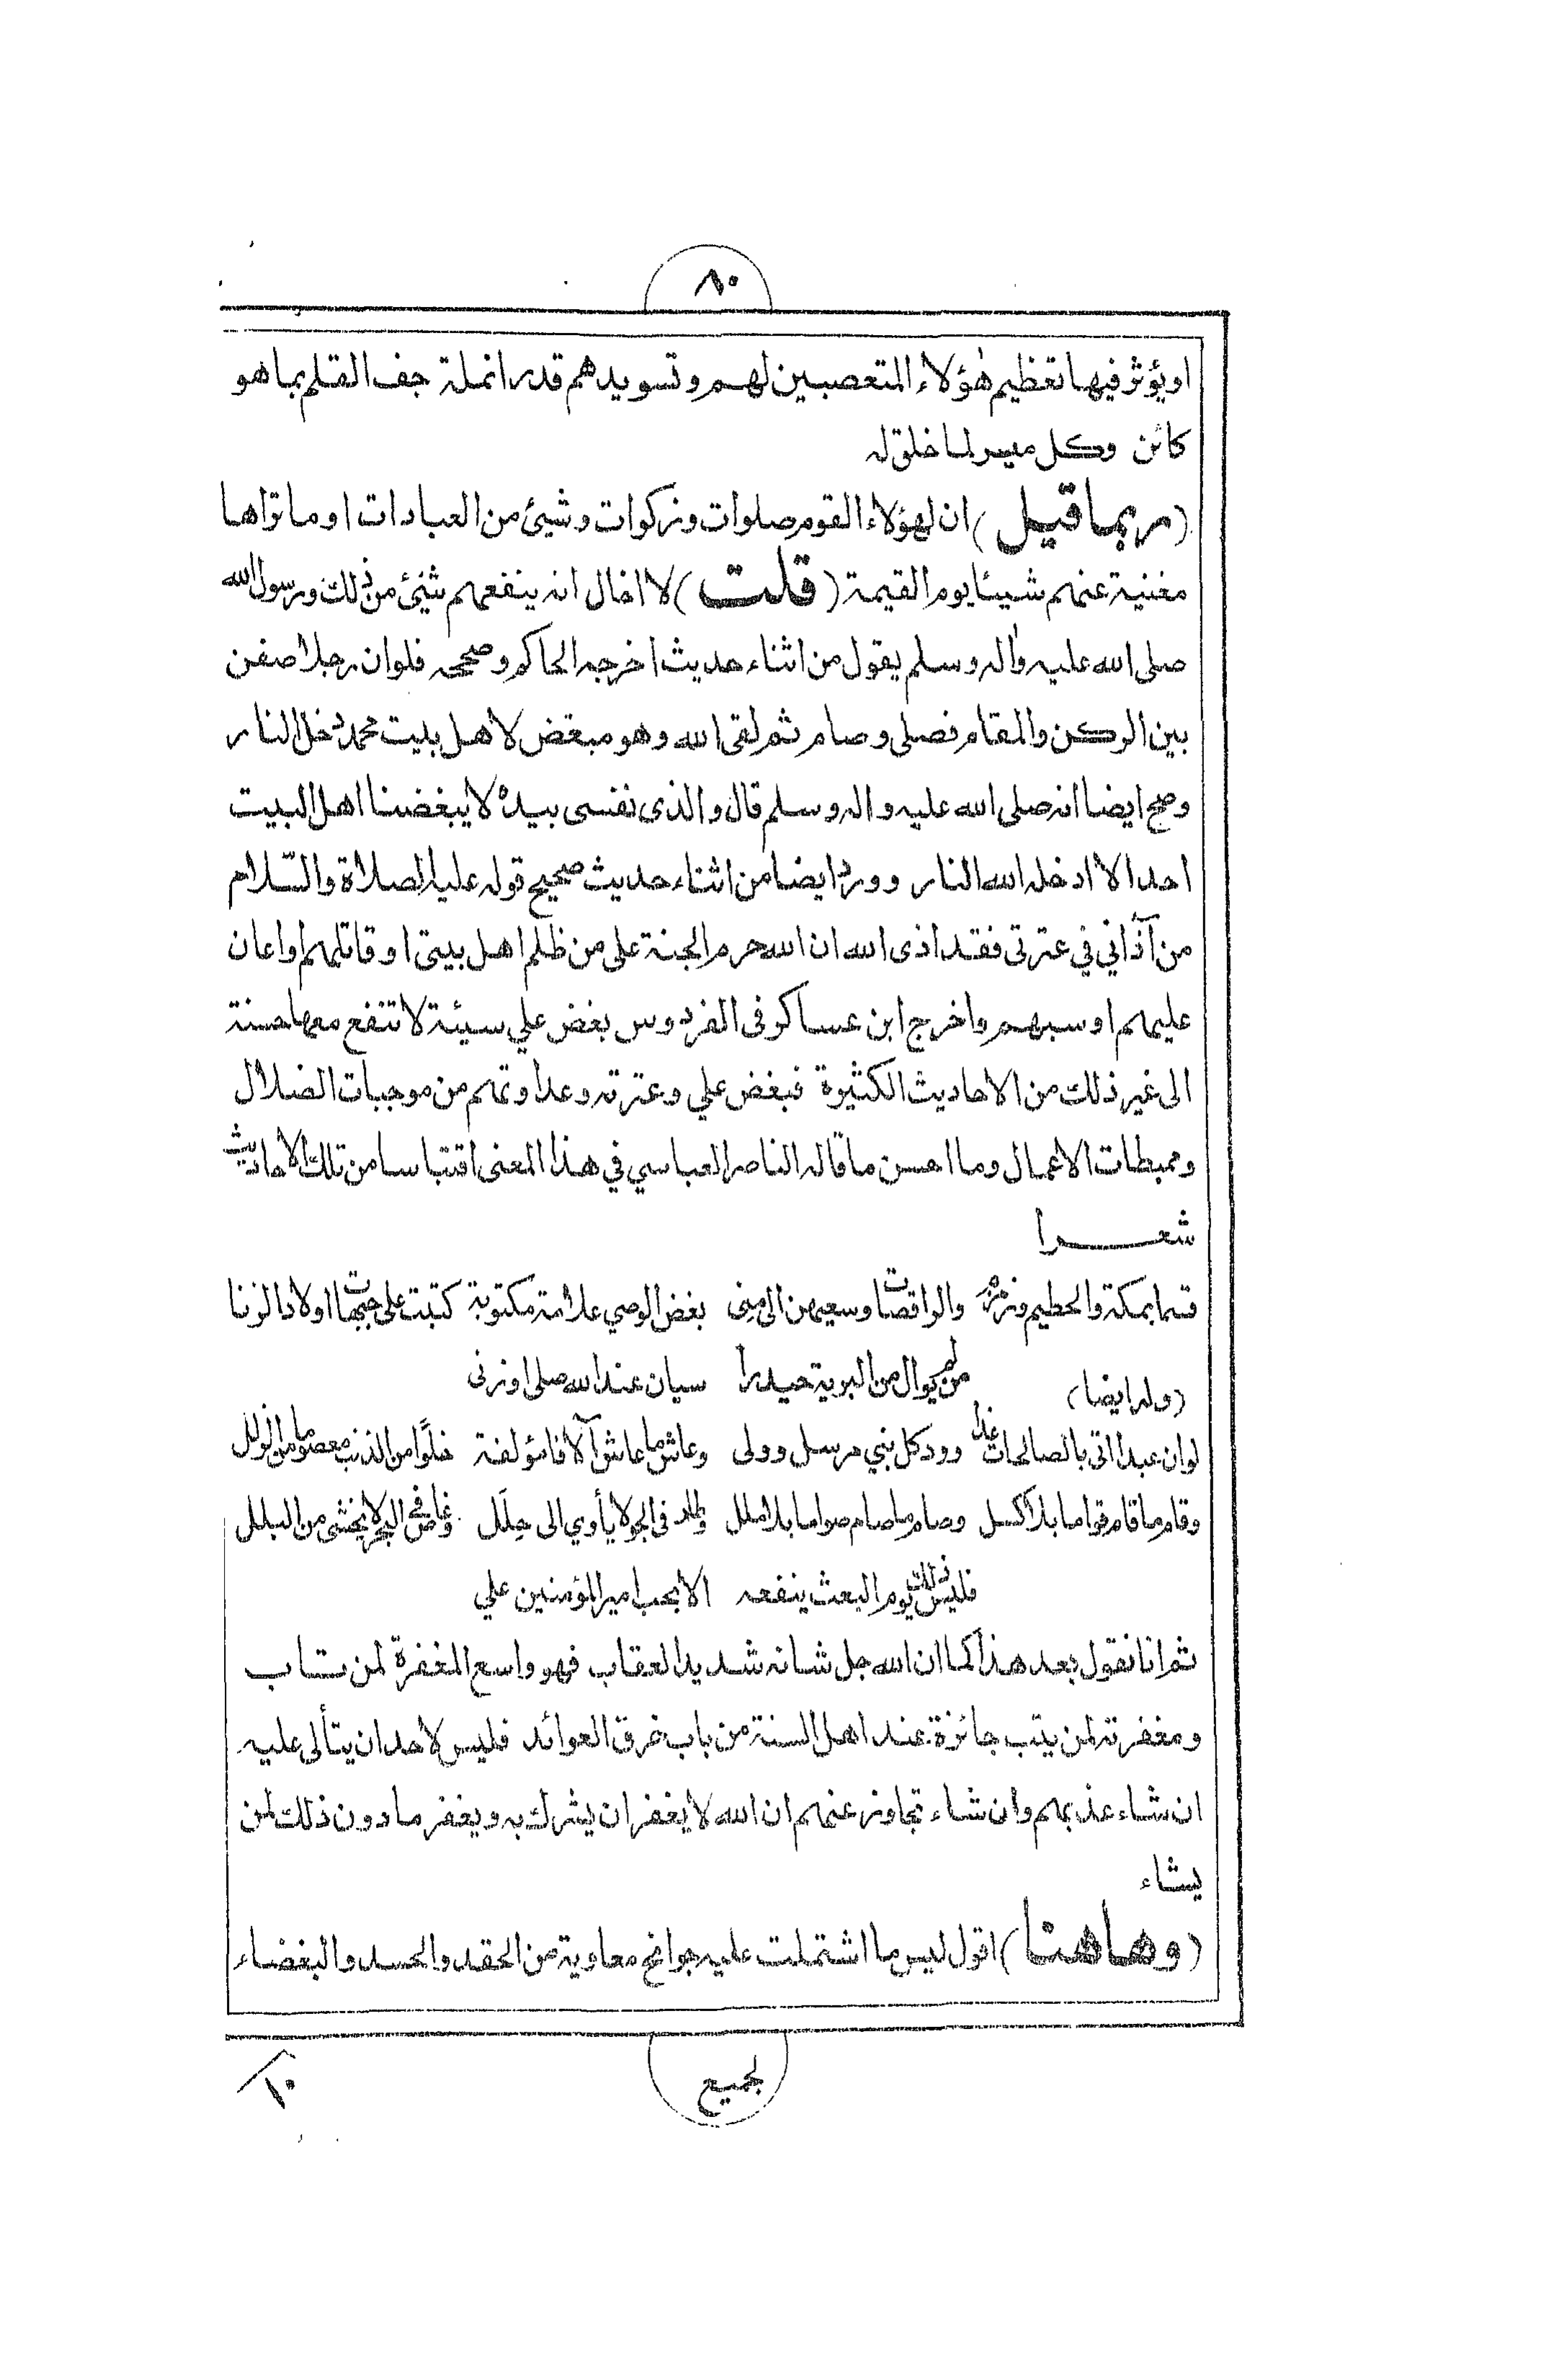 ٨٠
او يؤثر فيها تعظيم هٰؤلاء المتعصبين لهم وتسويدهم قدر انملة جف القلم بما هو
كائن وكل ميسر لما خلق له
(ربما قيل) ان لهؤلاء القوم صلوات وزكوات وشيئ من العبادات او ما تراها
مغنية عنهم شيئا يوم القيمة (قلت) لا اخال انه ينفعهم شيئ من ذلك ورسول الله
صلى الله عليه واٰله وسلم يقول من اثناء حديث اخرجه الحاكم وصححه فلو ان رجلا صفن
بين الركن والمقام فصلى وصام ثم لقى الله وهو مبغض لاهل بيت محمد دخل النار
وصح ايضا انه صلى الله عليه واله وسلم قال والذى نفسى بيده لا يبغضنا اهل البيت
احد الا ادخله الله النار وورد ايضا من اثناء حديث صحيح قوله عليه الصلاة والسّلام
من آذاني في عترتى فقد اذى الله ان الله حرم الجنة على من ظلم اهل بيتى او قاتلهم او اعان
عليهم او سبهم واخرج ابن عساكر فى الفردوس بغض علي سيئة لا تنفع معها حسنة
الى غير ذلك من الاحاديث الكثيرة فبغض علي وعترته وعداوتهم من موجبات الضلال
ومحبطات الاعمال وما احسن ما قاله الناصر العباسي في هذا المعنى اقتباسا من تلك الاحاديث
شعرا
قسما بمكة والحطيم وزمزم والراقصات وسعيهن الى منى بغض الوصي علامة مكتوبة كتبت على جبهات اولاد الزنا
من لم يوال من البرية حيدرا سيان عند الله صلى او زنى
(وله ايضا)
لو ان عبدا اتى بالصالحات غدا وود كل نبي مرسل وولى وعاش ما عاش آلافا مؤلفة خلوًا من الذنب معصوما من الزلل
وقام ما قام قواما بلا كسل وصام ما صام صواما بلا ملل وطار فى الجو لا يأوي الى حِلَل وغاص فى البحر لا يخشى من البلل
فليس ذلك يوم البعث ينفعه الا بحب امير المؤمنين علي
ثم انا نقول بعد هذا كما ان الله جل شانه شديد العقاب فهو واسع المغفرة لمن تاب
ومغفرته لمن يتب جائزة عند اهل السنة من باب خرق العوائد فليس لاحد ان يتألى عليه
ان شاء عذبهم وان شاء تجاوز عنهم ان الله لا يغفر ان يشرك به ويغفر ما دون ذلك لمن
يشاء
(وهاهنا) اقول ليس ما اشتملت عليه جوانح معاوية من الحقد والحسد والبغضاء
لجميع
١٠